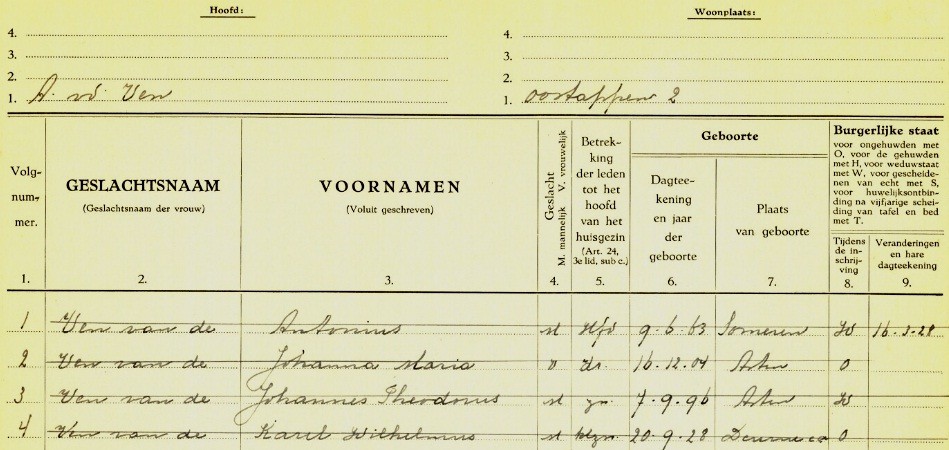 Hoofd: Woonplaats:
4. 4.
3. 3.
2. 2.
1. A. vd. Ven 1. Oostappen 2
Volgnummer.
GESLACHTSNAAM
(Geslachtsnaam der vrouw)
VOORNAMEN
(Voluit geschreven)
Geslacht
M. mannelijk V. vrouwelijk
Betrek-
king
der leden
tot het
hoofd
van het
huisgezin
(Art. 24,
3e lid, sub c.)
Geboorte
Dagtee-
kening
en jaar
der
geboorte
Plaats
van geboorte
Burgerlijke staat
voor ongehuwden met
O, voor de gehuwden
met H, voor weduwstaat
met W, voor gescheide-
nen van echt met S,
voor huwelijksontbin-
ding na vijfjarige schei-
ding van tafel en bed
met T.
Tijdens
de in-
schrij-
ving
Veranderingen
en hare
dagteekening
1. 2. 3. 4. 5. 6. 7. 8. 9.
1 Ven van de Antonius M Hfd 9.6.63 Someren W 16-3-28
2 Ven van de Johanna Maria V dr. 16.12.04 Asten O
3 Ven van de Johannes Theodorus M zn. 7-9-96 Asten W
4 Ven van de Karel Wilhelmus M klzn. 20.9.28 Deurne O